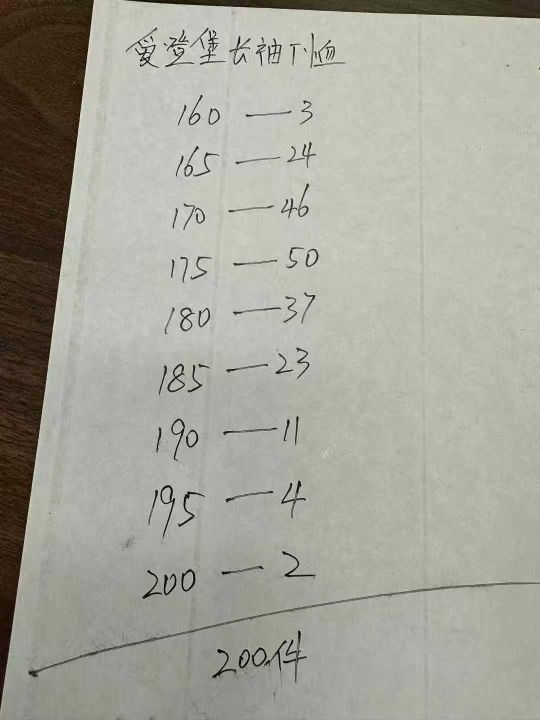 爱登堡长袖T恤
160 — 3
165 — 24
170 — 46
175 — 50
180 — 37
185 — 23
190 — 11
195 — 4
200 — 2
200件